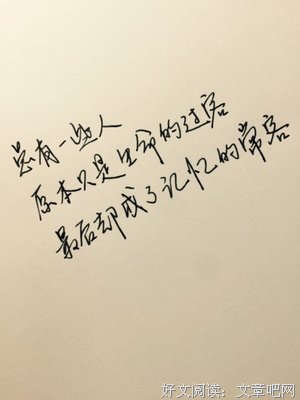 总有一些人
原本只是生命的过客
最后却成了记忆的常客
好文阅读：文章吧网